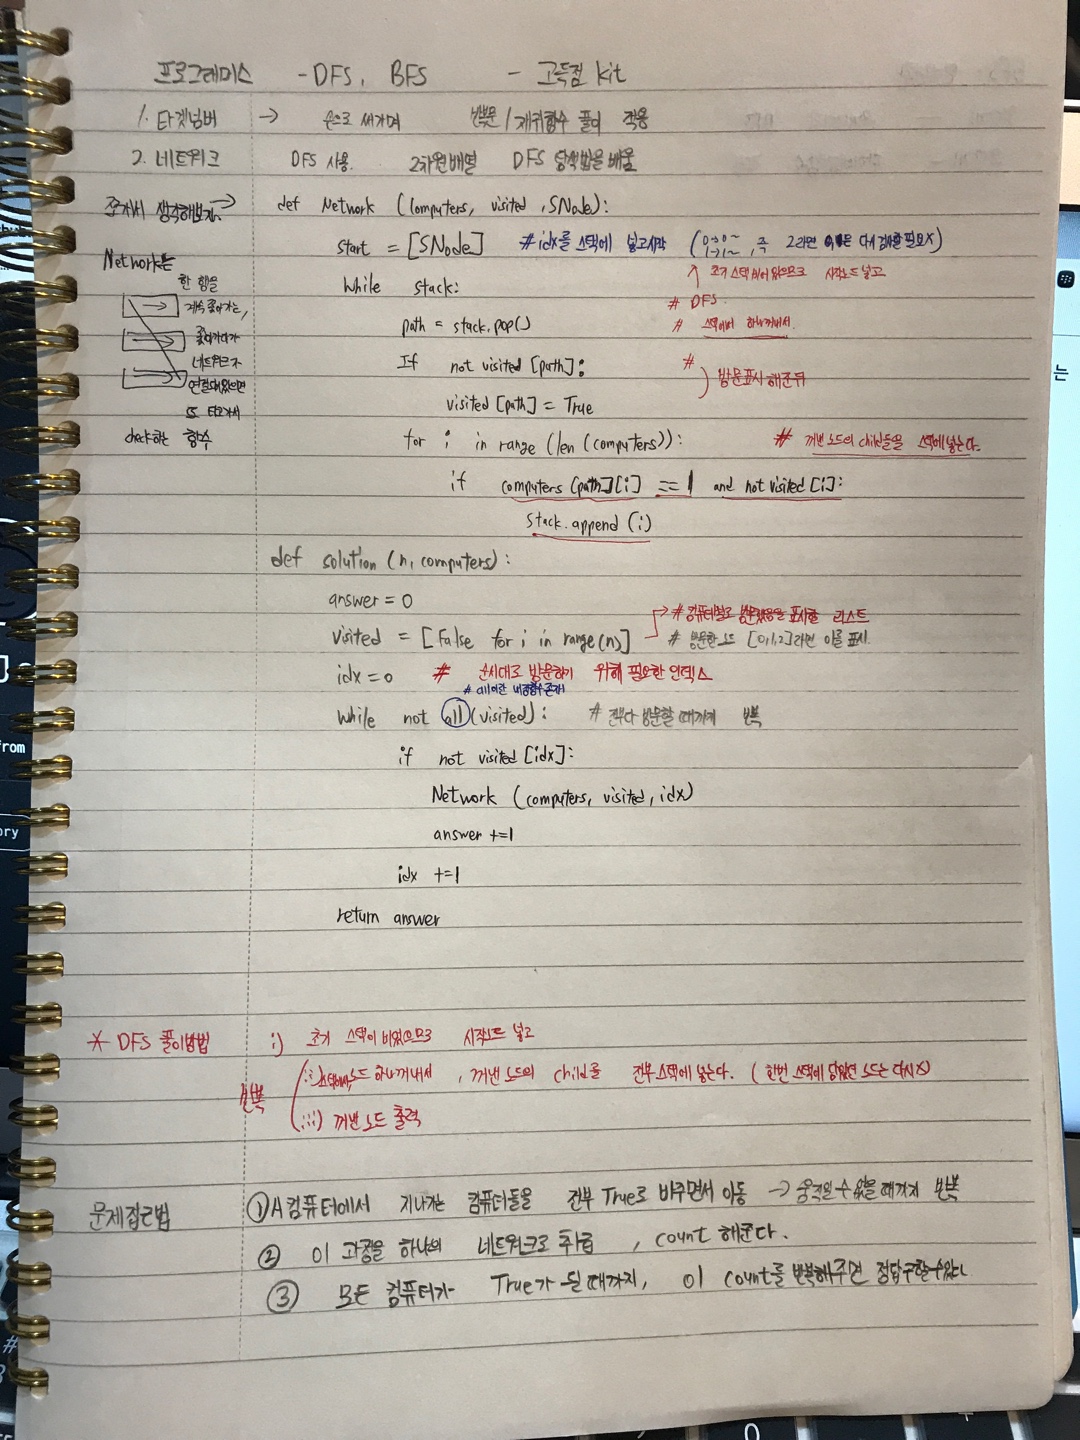 프로그래머스 - DFS, BFS - 고득점 kit
1. 타겟넘버 → 손으로 써가며 반복문 / 재귀함수 풀이 적용
2. 네트워크 DFS 사용. 2차원배열 DFS 탐색법을 배움
쪼개서 생각해보자. →
def Network (computers, visited, SNode):
start = [SNode] # idx를 스택에 넣고시작 (0→0~ 1→1~, 즉 2라면 다시 검사할 필요X)
Network는
한 행을
계속 쫓아가는,
쫓아가다가
네트워크가
연결돼있으면
또 타고가서
check하는 함수
↑ 초기 스택 비어있으므로 시작노드 넣고
while stack:
# DFS.
path = stack.pop() # 스택에서 하나꺼내서.
If not visited [path]: #
) 방문표시 해준뒤
visited [path] = True
for i in range (len (computers)): # 꺼낸 노드의 child들을 스택에 넣는다.
if computers [path][i] == 1 and not visited [i]:
stack.append (i)
def solution (n, computers):
answer = 0
→ # 컴퓨터별로 방문했음을 표시할 리스트
visited = [False for i in range(n)] # 방문한 노드 [0,1,2]라면 이를 표시.
idx = 0 # 순서대로 방문하기 위해 필요한 인덱스
# all이란 내장함수존재
while not all (visited): # 전부다 방문할 때까지 반복
if not visited [idx]:
Network (computers, visited, idx)
answer +=1
idx +=1
return answer
* DFS 풀이방법 i) 초기 스택이 비었으므로 시작노드 넣고
반복 ii) 스택에서 노드 하나꺼내서, 꺼낸 노드의 child를 전부 스택에 넣는다. (한번 스택에 담았던 노드는 다시X)
iii) 꺼낸 노드 출력
문제접근법 ① A컴퓨터에서 지나가는 컴퓨터들을 전부 True로 바꾸면서 이동 → 움직일수 없을때까지 반복
② 이 과정을 하나의 네트워크로 취급, count 해준다.
③ 모든 컴퓨터가 True가 될 때까지, 이 count를 반복해주면 정답구할수있다